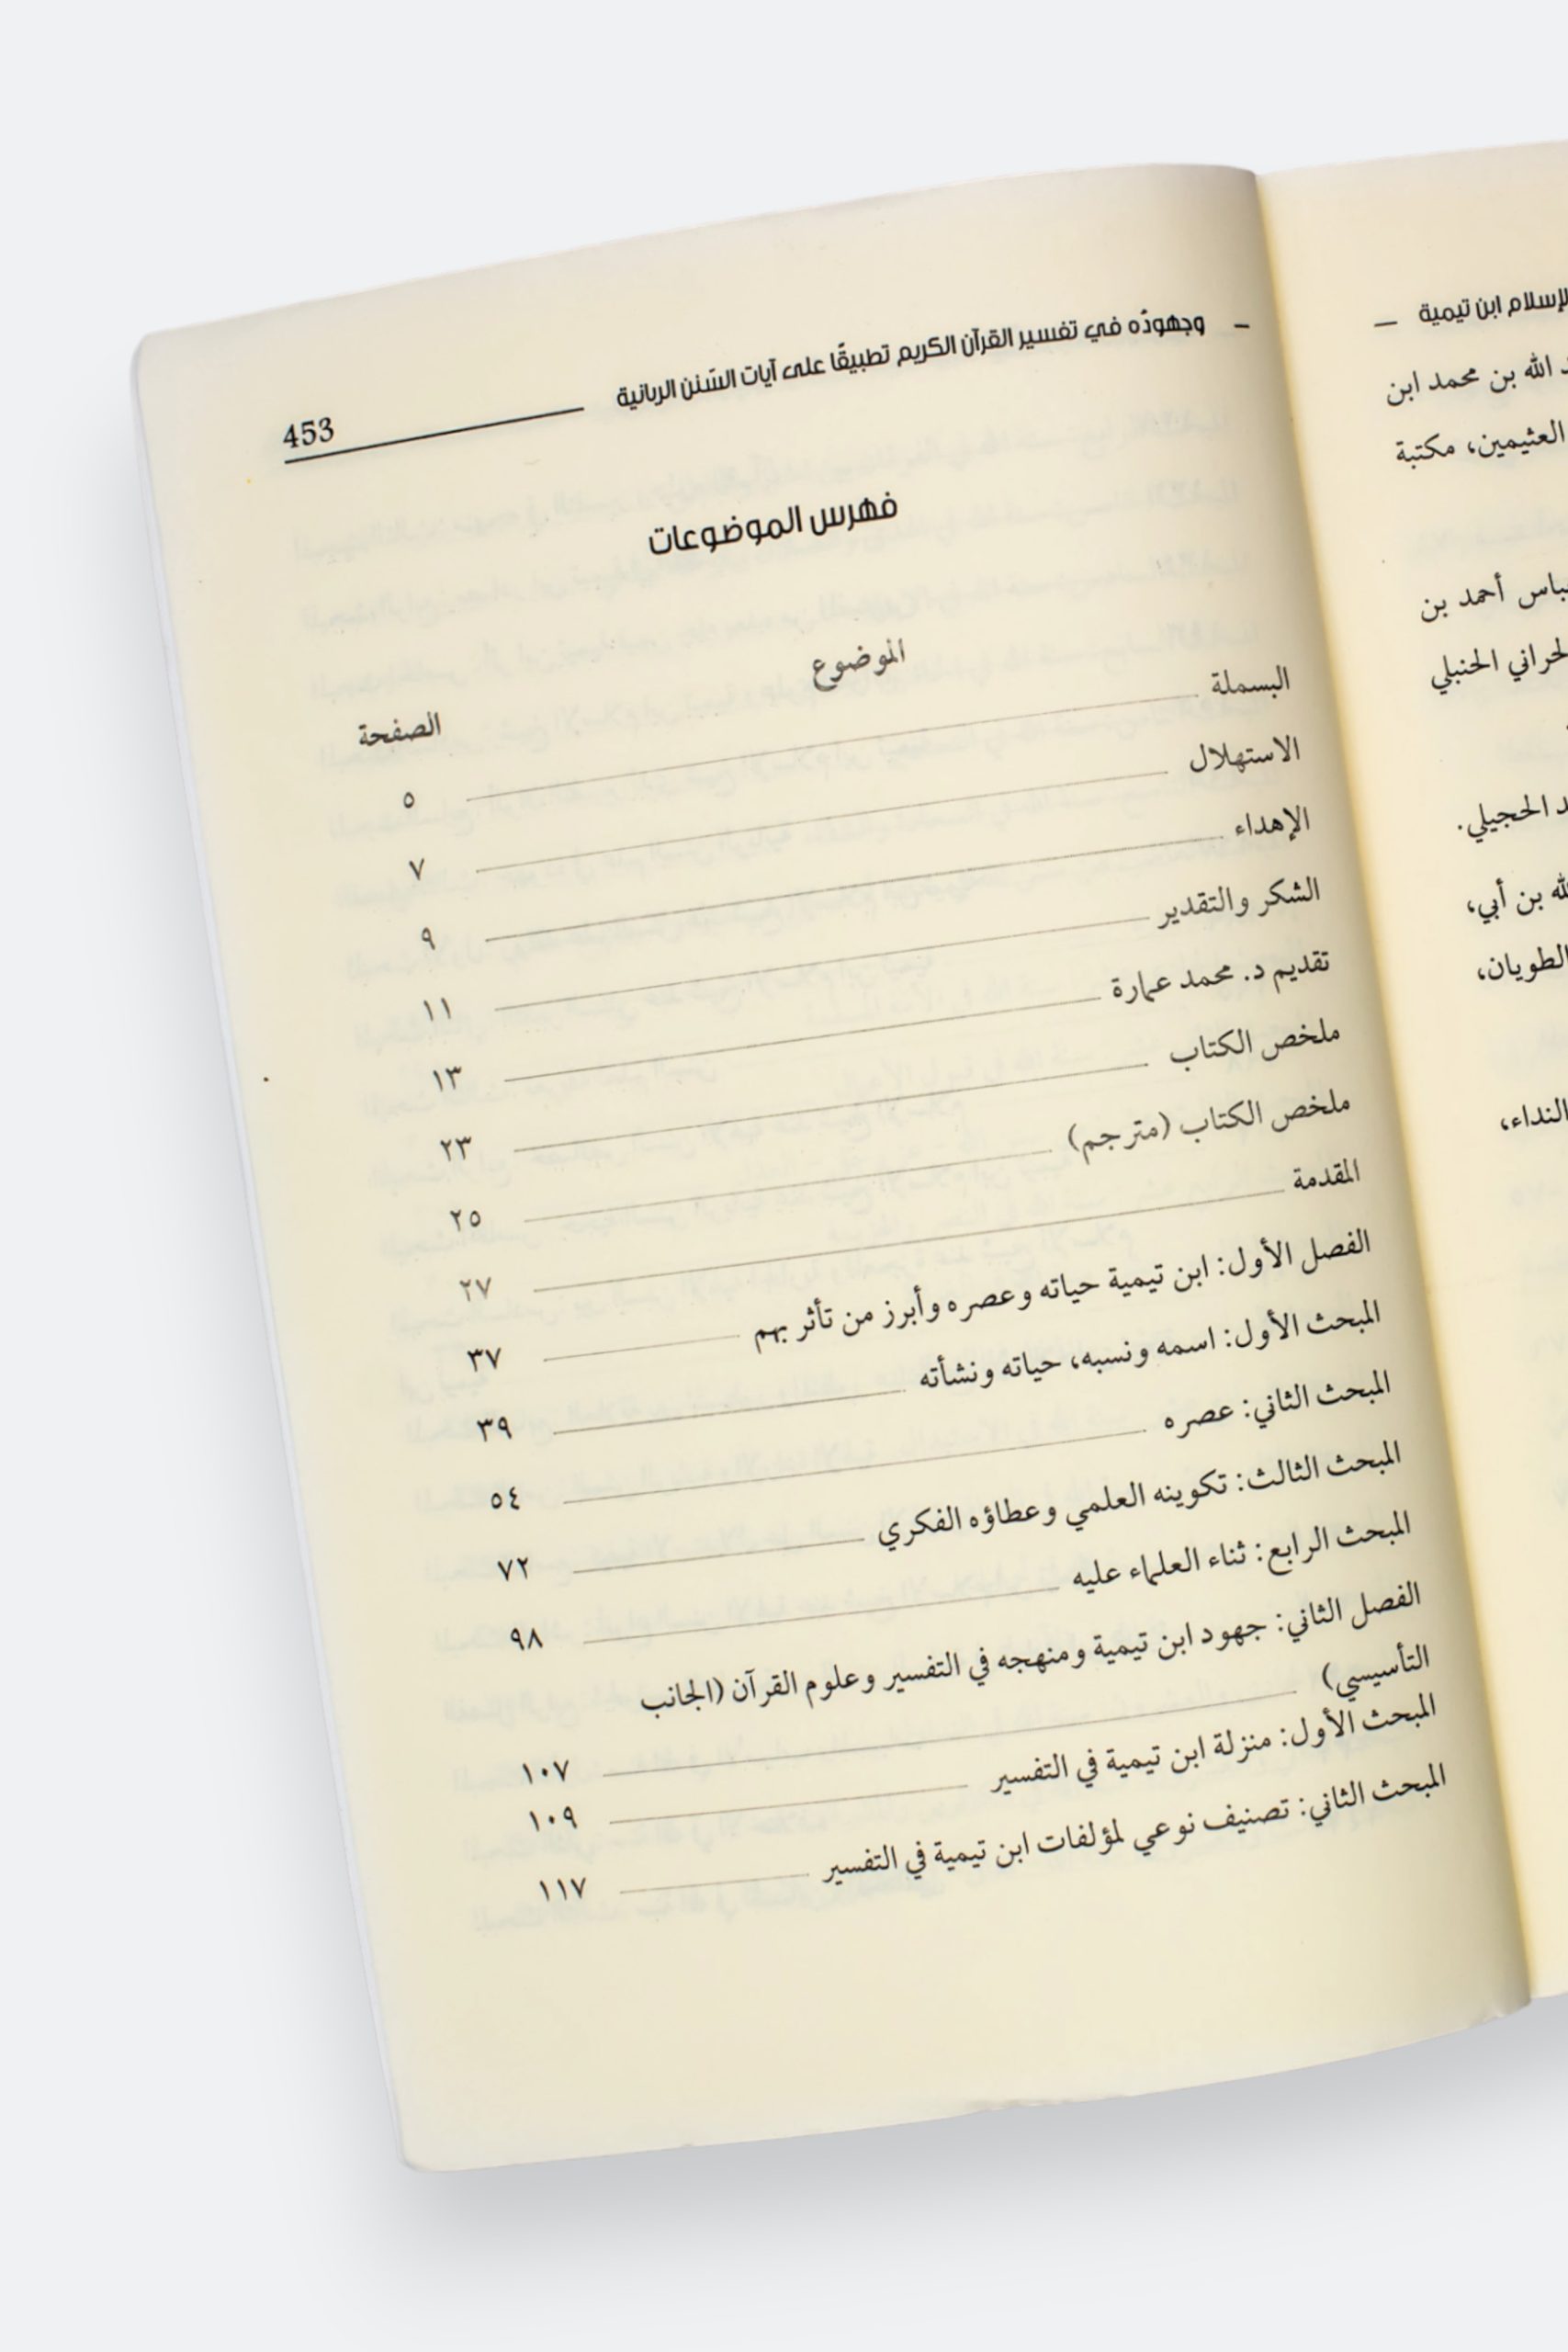 لإسلام ابن تيمية
الله بن محمد ابن
العثيمين، مكتبة
أحمد بن
الحنبلي
الحجيلي.
بن أبي،
الطويان،
النداء،
وجهودُه في تفسير القرآن الكريم تطبيقًا على آيات السّنن الربانية 453
فهرس الموضوعات
الموضوع الصفحة
البسملة ٥
الاستهلال ٧
الإهداء ٩
الشكر والتقدير ١١
تقديم د. محمد عمارة ١٣
ملخص الكتاب ٢٣
ملخص الكتاب (مترجم) ٢٥
المقدمة ٢٧
الفصل الأول: ابن تيمية حياته وعصره وأبرز من تأثر بهم ٣٧
المبحث الأول: اسمه ونسبه، حياته ونشأته ٣٩
المبحث الثاني: عصره ٥٤
المبحث الثالث: تكوينه العلمي وعطاؤه الفكري ٧٢
المبحث الرابع: ثناء العلماء عليه ٩٨
الفصل الثاني: جهود ابن تيمية ومنهجه في التفسير وعلوم القرآن (الجانب
التأسيسي) ١٠٧
المبحث الأول: منزلة ابن تيمية في التفسير ١٠٩
المبحث الثاني: تصنيف نوعي لمؤلفات ابن تيمية في التفسير ١١٧